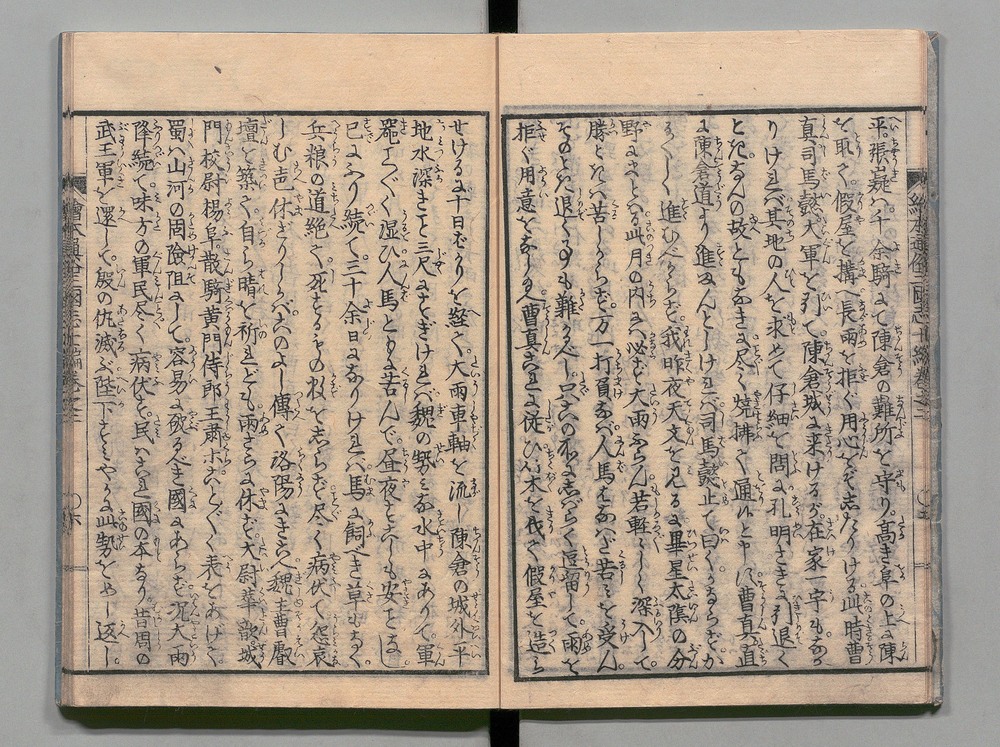 平。張嶷ハ千余騎にて陳倉の難所を守り。高き阜の上に陳
を取て。假屋を構へ長雨を拒ぐ用心をぞ志たりける此時曹
真司馬懿大軍を引て陳倉城に来けるが。在家一宇もなか
りけれバ其地の人を求めて仔細を問に孔明さきに引退く
ときなんの故ともなきに尽く焼拂て通れと申にぞ曹真直
に陳倉道より進まんとしけれバ司馬懿止て曰くかならずか
るがるしく進むべからず我昨夜天文を見るに畢星太陰の分
野にさとる此月の内にハ必ず大雨ふらん若軽々しく深入して
勝ときハ苦しからず万一打負なバ人馬みなはなハだ苦ミを受ん
そのとき退くるも難かるべし只この所に志ばらく逗留して雨を
拒ぐ用意をなしたまへ曹真これに従ひ木を伐て假屋を造ら
せけるに十日ばかりを経て。大雨車軸を流し陳倉の城外平
地水深きこと三尺にすぎけれバ魏の勢みな水中にありて軍
器こと〴〵く湿ひ人馬ともに苦んで。昼夜すこしも安ことなし
已にふり続て三十余日になりけれバ馬に飼べき草もなく
兵粮の道絶て死するもの数を志らず尽く病伏て怨哀
しむ声休ざりしかバこのよし傳て洛陽にきこへ魏主曹叡
壇を築て自ら晴を祈れども雨さらに休ず大尉華歆。城
門校尉楊阜散騎黄門侍郎王肅ホこと〴〵く表をあげて
蜀ハ山河の周險阻にして。容易に破るべき國にあらず况大雨
降続て味方の軍民尽く病伏せり。民ハこれ國の本なり。昔周の
武王軍を還して。殷の仇滅ぶ陛下すミやかに此勢をめし返し。